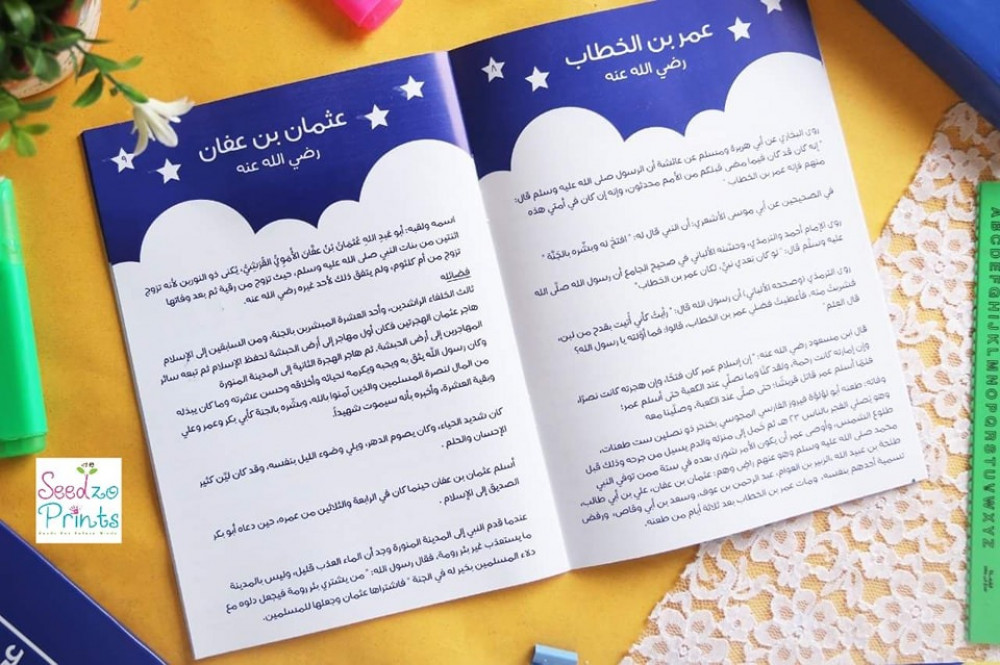 عمر بن الخطاب
رضي الله عنه
٨
روى البخاري عن أبي هريرة ومسلم عن عائشة أن الرسول صلى الله عليه وسلم قال:
" إنه كان قد كان فيما مضى قبلكم من الأمم محدثون، وإنه إن كان في أمتي هذه
منهم فإنه عمر بن الخطاب "
في الصحيحين عن أبي موسى الأشعري: أن النبي قال له: " افتح له وبشّره بالجنَّة "
روى الإمام أحمد والترمذي، وحسّنه الألباني في صحيح الجامع أن رسول الله صلّى الله
عليه وسلّم قال: " لو كان بَعدي نبيٌّ، لكان عمر بن الخطاب"
روى الترمذي (وصححه الألباني) أن رسول الله قال: " رأيتُ كأني أُتيت بقدح من لبن،
فشربت منه، فأعطيتُ فضلي عمر بن الخطاب، قالوا: فما أوّلته يا رسول الله؟
قال العلم"
قال ابن مسعود رضي الله عنه: " إن إسلام عمر كان فتحًا، وإن هجرته كانت نصرًا،
وإن إمارته كانت رحمة، ولقد كنّا وما نصلّي عند الكعبة حتى أسلم عمر؛
فلمّا أسلم عمر قاتل قريشًا؛ حتى صلَّى عند الكعبة، وصلَّينا معه
وفاته: طعنه أبو لؤلؤة فيروز الفارسي المجوسي بخنجر ذو نصلين ست طعنات،
وهو يُصلي الفجر بالناس ٢٣ هـ، ثم حُمل إلى منزله والدم يسيل من جرحه وذلك قبل
طلوع الشمس، وأوصى عمر أن يكون الأمر شورى بعده في ستة ممن توفي النبي
محمد صلى الله عليه وسلم وهو عنهم راضٍ وهم: عثمان بن عفان، علي بن أبي طالب،
طلحة بن عبيد الله، الزبير بن العوام، عبد الرحمن بن عوف، وسعد بن أبي وقاص، ورفض
تسمية أحدهم بنفسه، ومات عمر بن الخطاب بعد ثلاثة أيام من طعنه.
عثمان بن عفان
رضي الله عنه
٩
اسمه ولقبه: أبو عَبدِ اللهِ عُثمانُ بْنُ عفَّان الأُمَويُّ القُرَشِيُّ، يُكنى ذو النورين لأنه تزوج
اثنتين من بنات النبي صلى الله عليه وسلم، حيث تزوج من رقية ثم بعد وفاتها
تزوج من أم كلثوم، ولم يتفق ذلك لأحد غيره رضي الله عنه.
فضائله
ثالث الخلفاء الراشدين، وأحد العشرة المبشرين بالجنة، ومن السابقين إلى الإسلام
هاجر عثمان الهجرتين فكان أول مهاجر إلى أرض الحبشة لحفظ الإسلام ثم تبعه سائر
المهاجرين إلى أرض الحبشة، ثم هاجر الهجرة الثانية إلى المدينة المنورة
وكان رسول الله يثق به ويحبه ويكرمه لحيائه وأخلاقه وحسن عشرته وما كان يبذله
من المال لنصرة المسلمين والذين آمنوا بالله، وبشّره بالجنة كأبي بكر وعمر وعلي
وبقية العشرة، وأخبره بأنه سيموت شهيداً.
كان شديد الحياء، وكان يصوم الدهر، ويلي وضوء الليل بنفسه، وقد كان ليّن كثير
الإحسان والحلم .
أسلم عثمان بن عفان حينما كان في الرابعة والثلاثين من عمره، حين دعاه أبو بكر
الصديق إلى الإسلام .
عندما قدم النبي إلى المدينة المنورة وجد أن الماء العذب قليل، وليس بالمدينة
ما يستعذب غير بئر رومة، فقال رسول الله: " من يشتري بئر رومة فيجعل دلوه مع
دلاء المسلمين بخير له في الجنة " فاشتراها عثمان وجعلها للمسلمين.
Seedzo
Prints
ABCDEFGHIJKLMNOPQRSTUVWXYZ